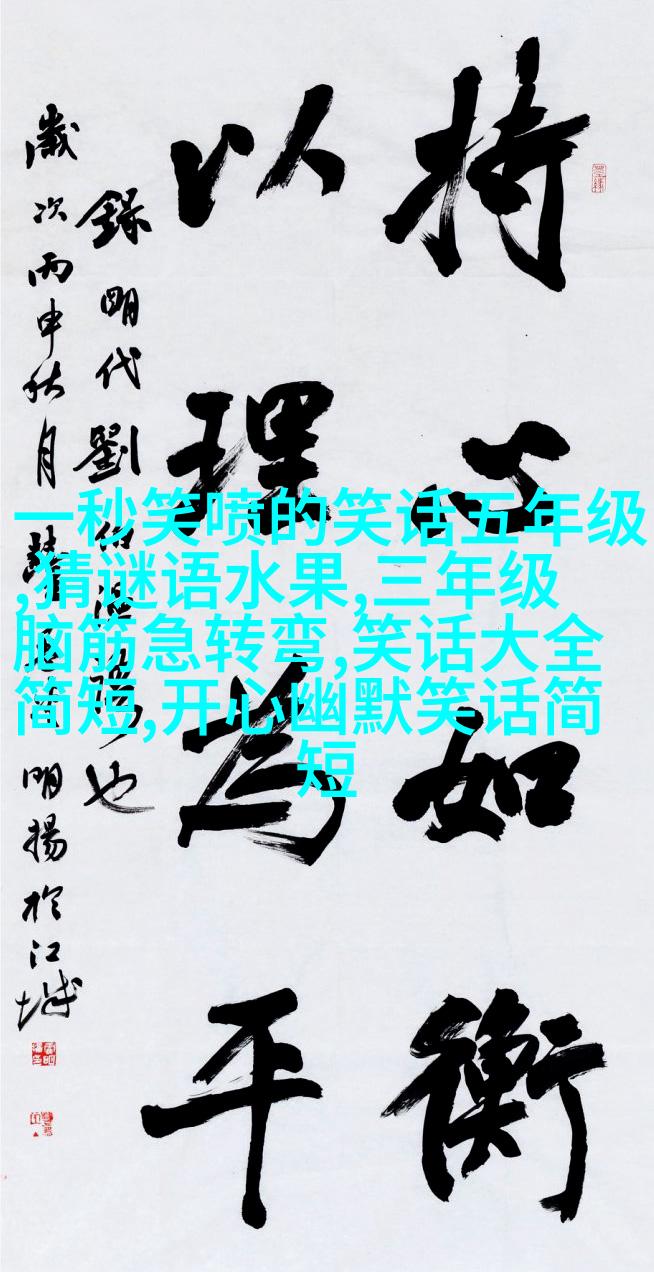 持心如衡
以理为平
錄明代劉伯温語也
歲次丙申秋月
明揚於江城
一秒笑喷的笑话五年级
,猜谜语水果,三年级
脑筋急转弯,笑话大全
简短,开心幽默笑话简
短